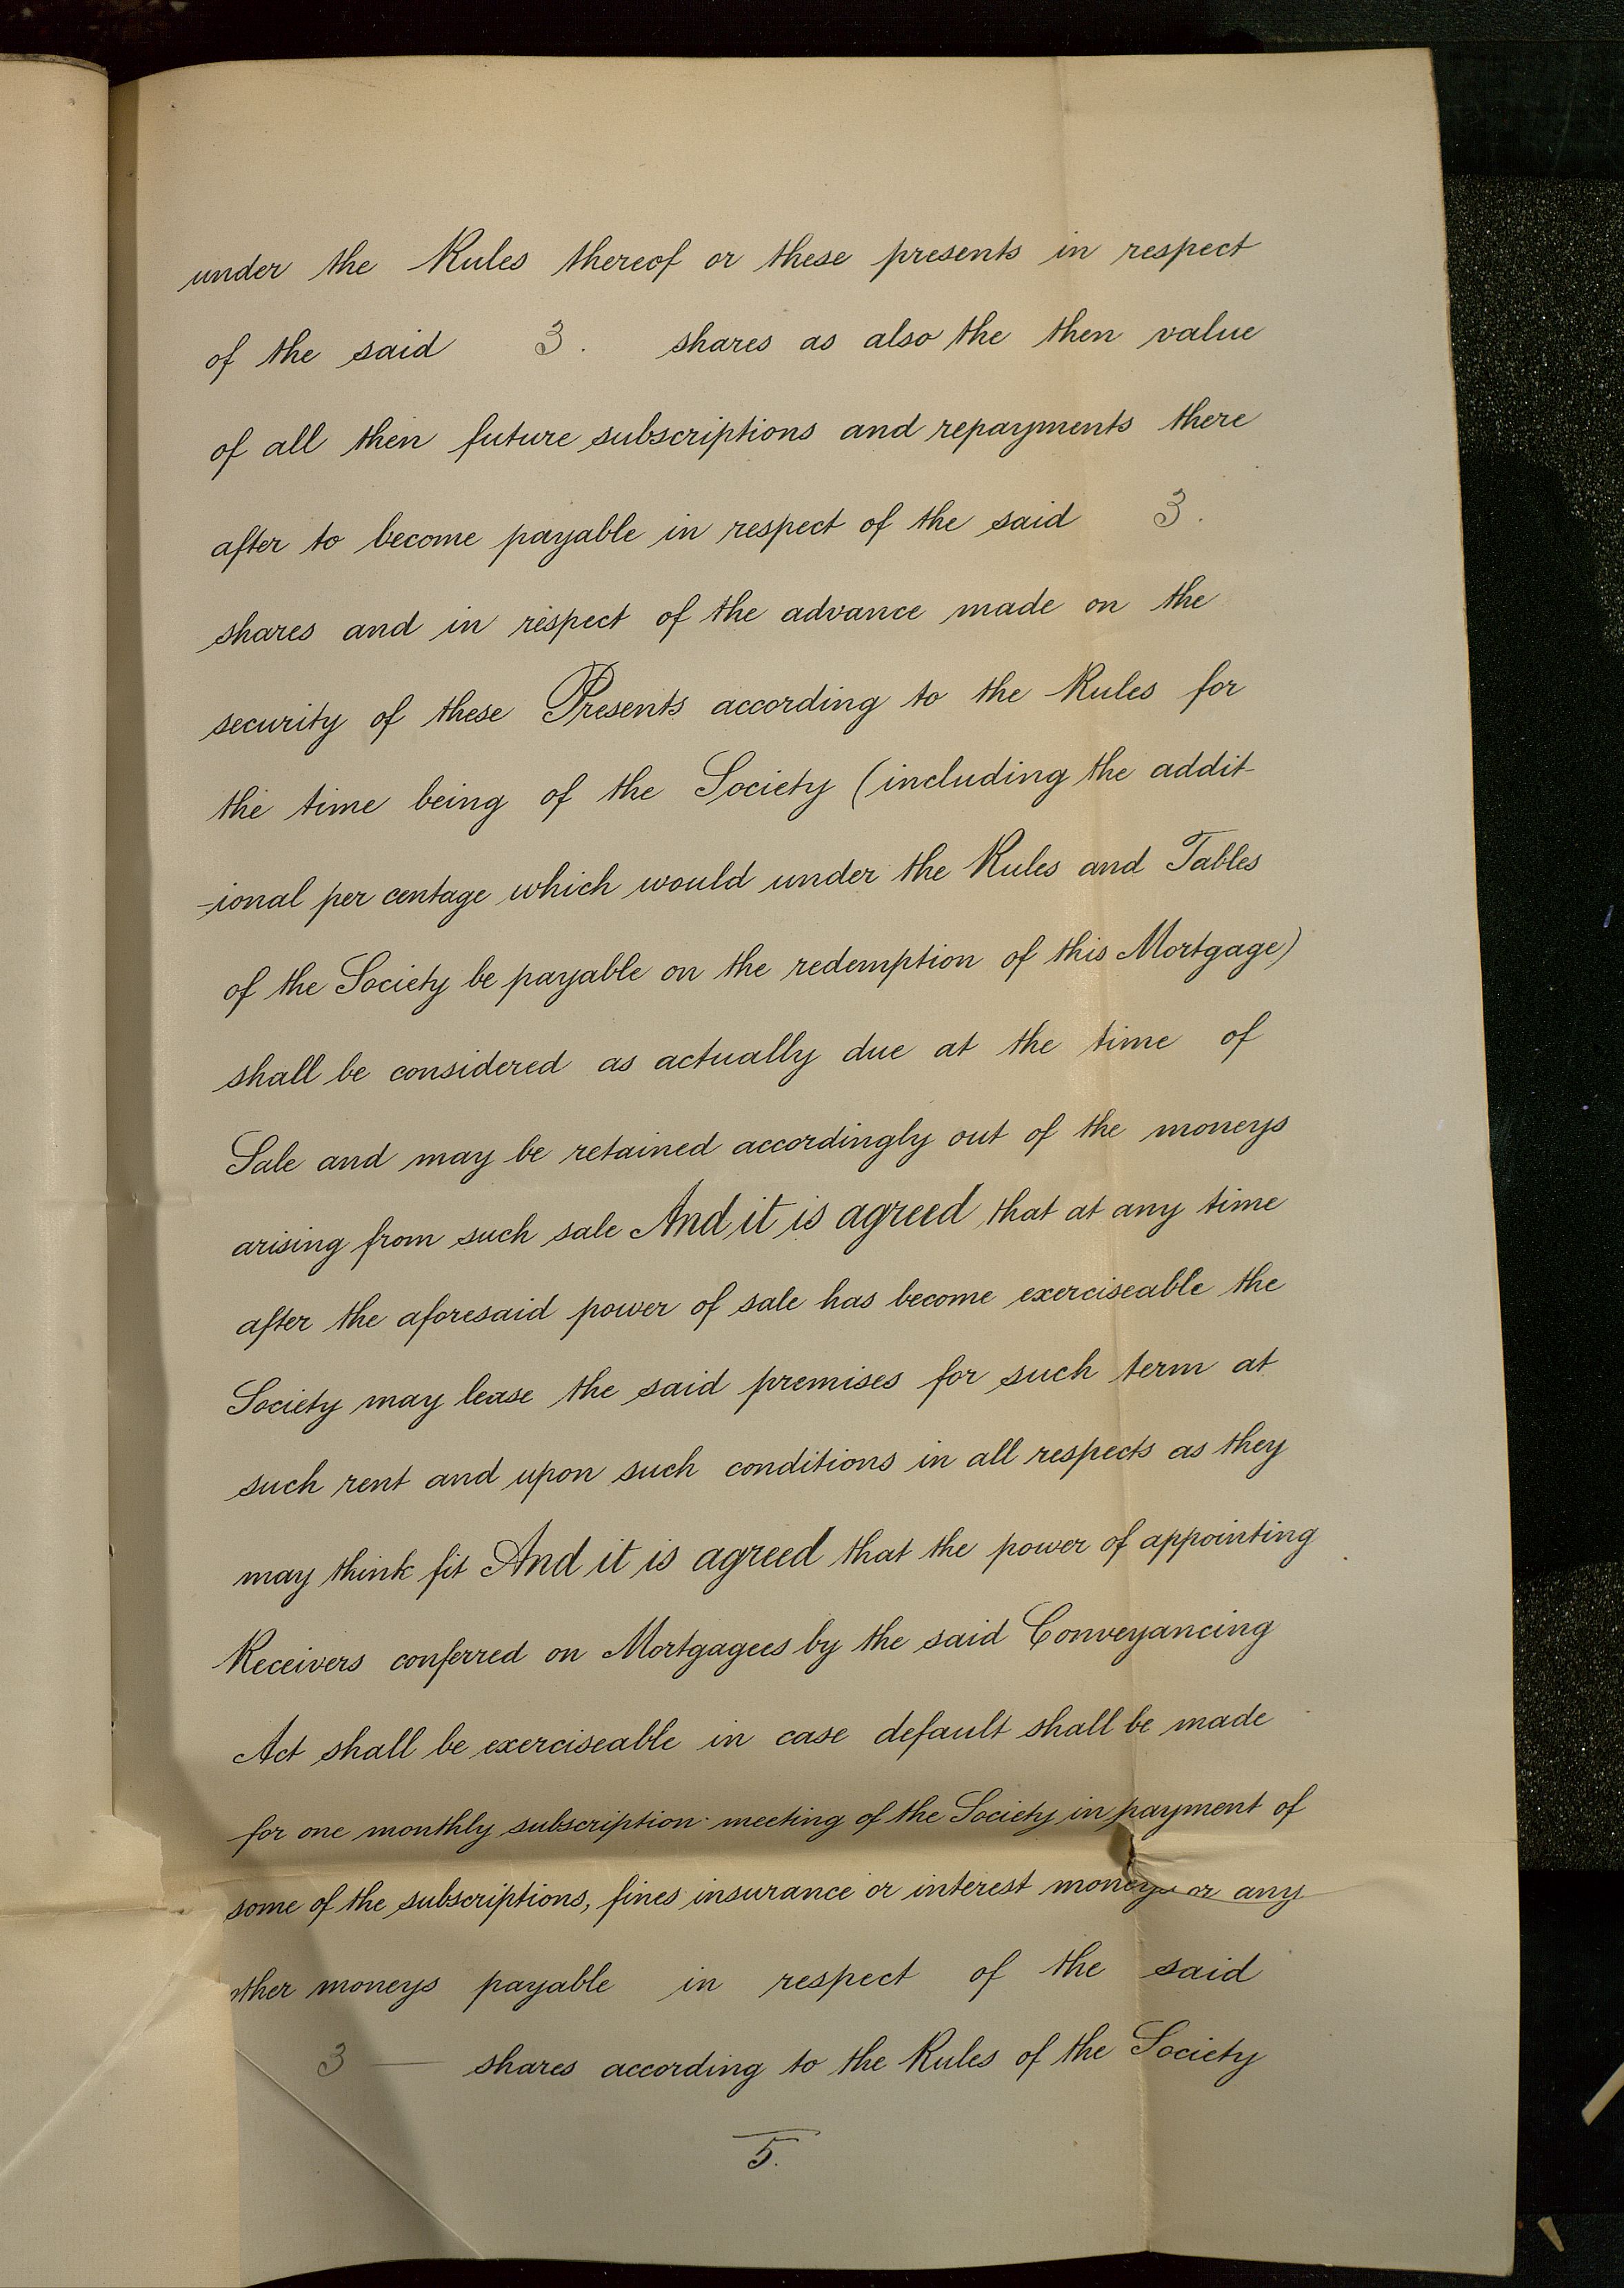 under the Rules thereof or these presents in respect
of the said 3. shares as also the then value
of all then future subscriptions and repayments there
after to become payable in respect of the said 3.
shares and in respect of the advance made on the
security of these Presents according to the Rules for
the time being of the Society (including the addit-
-ional per centage which would under the Rules and Tables
of the Society be payable on the redemption of this Mortgage)
shall be considered as actually due at the time of
Sale and may be retained accordingly out of the moneys
arising from such sale And it is agreed that at any time
after the aforesaid power of sale has become exerciseable the
Society may lease the said premises for such term at
such rent and upon such conditions in all respects as they
may think fit And it is agreed that the power of appointing
Receivers conferred on Mortgagees by the said Conveyancing
Act shall be exerciseable in case default shall be made
for one monthly subscription meeting of the Society in payment of
some of the subscriptions, fines insurance or interest moneys or any
other moneys payable in respect of the said
3 — shares according to the Rules of the Society
5.